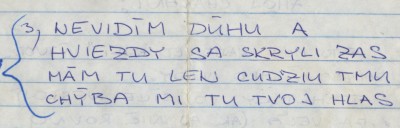 3, NEVIDÍM DÚHU A
HVIEZDY SA SKRYLI ZAS
MÁM TU LEN CUDZIU TMU
CHÝBA MI TU TVOJ HLAS